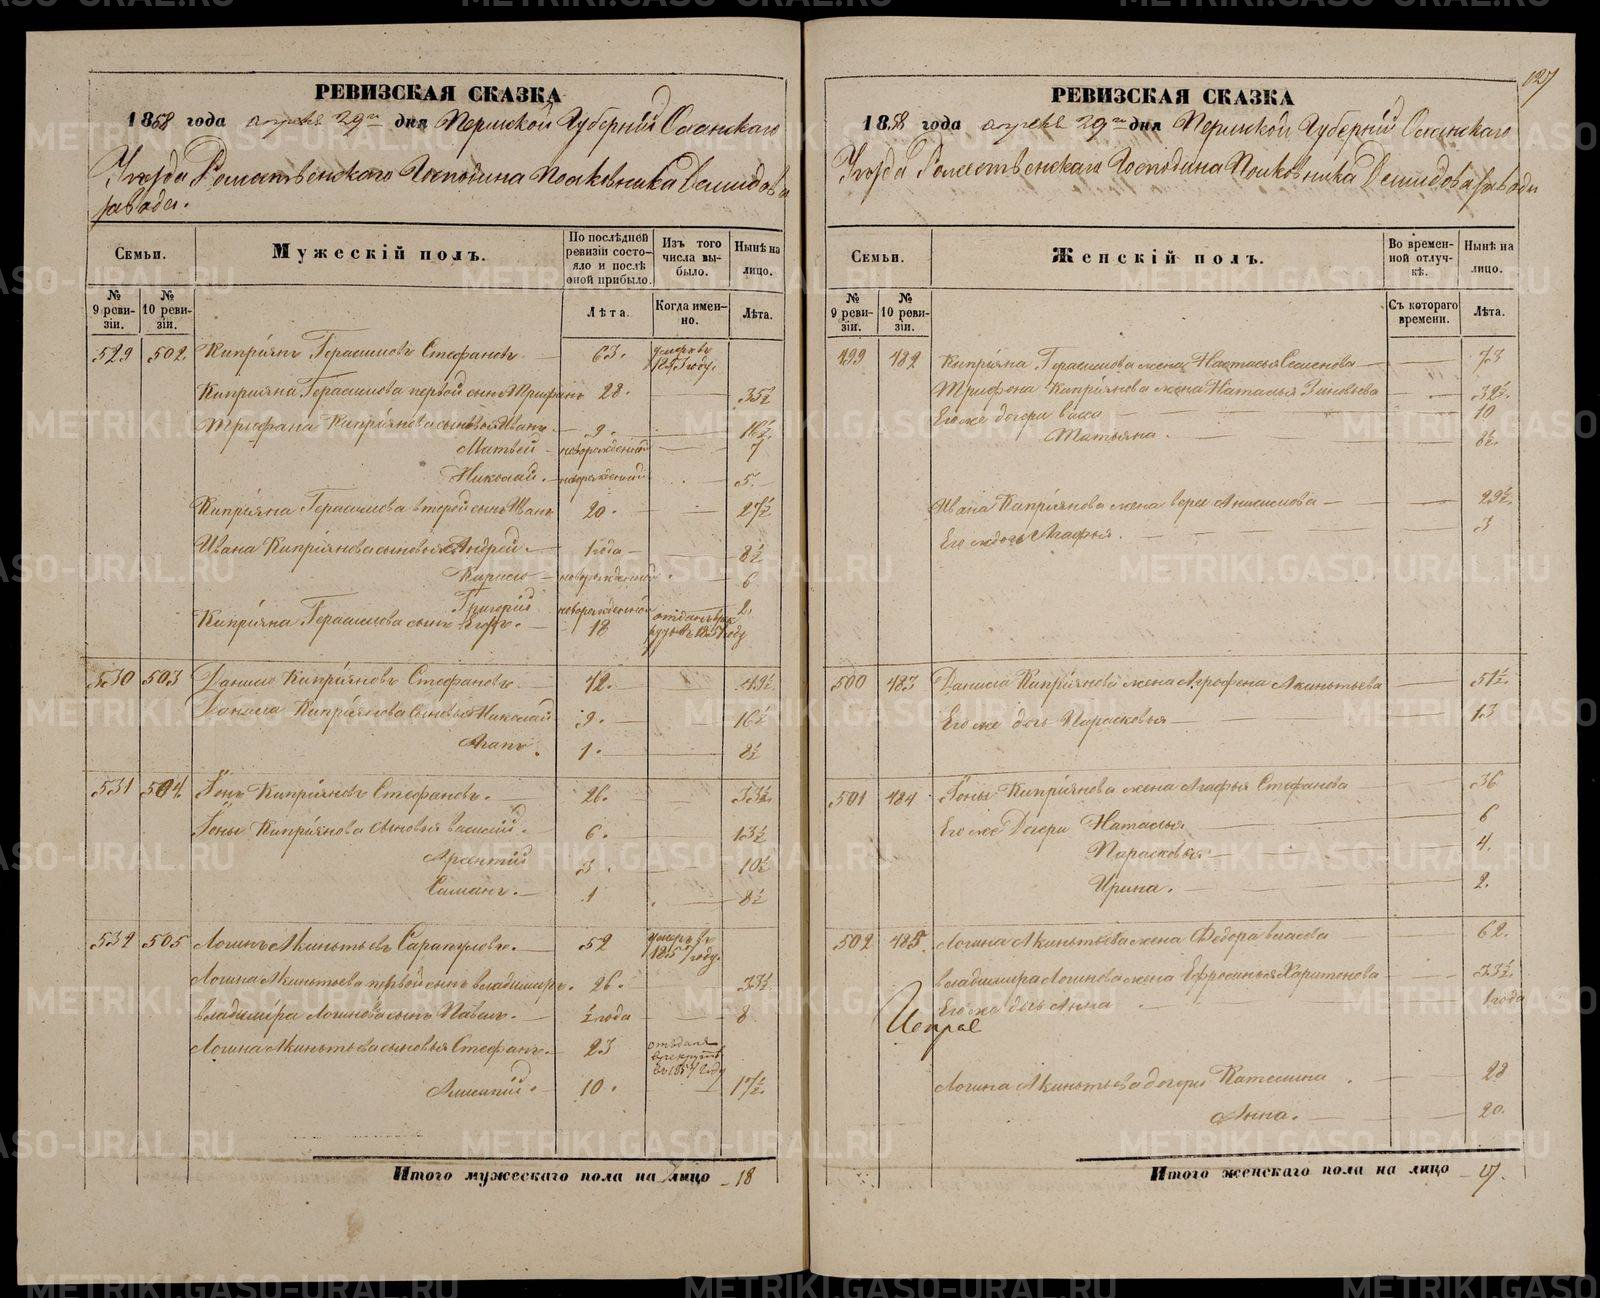 РЕВИЗСКАЯ СКАЗКА
1858 года апреля 29го дня Пермской Губернии Осинскаго
Уезда Рожественскаго Господина Полковника Демидова
завода.
Семьи.
Мужескій полъ.
По послѣдней ревизіи состояло и послѣ оной прибыло.
Изъ того числа выбыло.
Нынѣ на лицо.
№ 9 ревизіи.
№ 10 ревизіи.
Лѣта.
Когда именно.
Лѣта.
529 502 Кипріянъ Герасимовъ Стефановъ 63. умеръ въ 1853 году.
Кипріяна Герасимова первой сынъ Трифанъ 28. 35½
Трифана Кипріянова сыновья Иванъ 9. 16½
Матвей новорожденный 7
Николай новорожденный 5.
Кипріяна Герасимова второй сынъ Иванъ 20. 27½
Ивана Кипріянова сыновья Андрей 1 года 8½
Кирило новорожденный 6
Григорий новорожденной 2.
Кипріяна Герасимова сынъ Егоръ 18 году
530 503 Данило Кипріяновъ Стефановъ 42. 49½
Данила Кипріянова сыновья Николай 9. 16½
Агапъ. 1. 8½
531 504 Гонъ Кипріяновъ Стефановъ. 26. 33½
Гоны Кипріянова сыновья Василий 6. 13½
Арсентий 3. 10½
Симанъ. 1 8½
532 505 Логинъ Акинтьевъ Сарапуловъ. 52 умеръ въ 1857 году.
Логина Акинтьева первой сынъ Владимиръ. 26. 33½
Владимира Логинова сынъ Павелъ. ½ года 8
Логина Акинтьева сыновья Стефанъ 23 отданъ в рекруты въ 1857 году
10. 17½
Итого мужескаго пола на лицо 18
127
РЕВИЗСКАЯ СКАЗКА
1858 года апреля 29го дня Пермской Губернии Осинскаго
Уезда Рожественскаго Господина Полковника Демидова завода
Семьи.
Женскій полъ.
Во временной отлучкѣ.
Нынѣ на лицо.
№ 9 ревизіи.
№ 10 ревизіи.
Съ котораго времени.
Лѣта.
499 482 Кипріяна Герасимова жена Настасья Семенова 73
Трифона Кипріянова жена Наталья Зиновьева 32½
Его же дочери 10
Татьяна. 8½
Ивана Кипріянова жена Вера Анисимова 29½
Его ж дочь Агафья. 3
500 483 Данила Кипріянова жена Агрофена Акинтьева 51½
Его же дочь Парасковья 13
501 484 Гоны Кипріянова жена Агафья Стефанова 36
Его же Дочери Наталья 6
Парасковья 4.
Ирина. 2.
502 485. Логина Акинтьева жена Федора Власова 62.
Владимира Логинова жена Ефросинья Харитонова 33½
Его же дочь Анна 1 года
Логина Акинтьева дочери Катерина 28
Анна. 20.
Итого женскаго пола на лицо 17.
METRIKI.GASO-URAL.RU